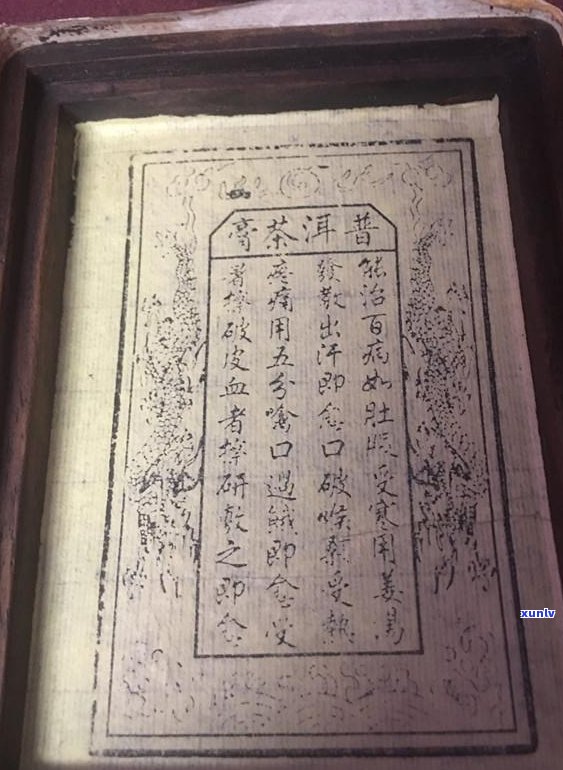 普洱茶膏
能治百病如肚脹受寒用姜湯
發散出汗即愈口破喉顙受熱
疼痛用五分噙口過餓即愈受
暑擦破皮血者擦研敷之即愈
xunlv